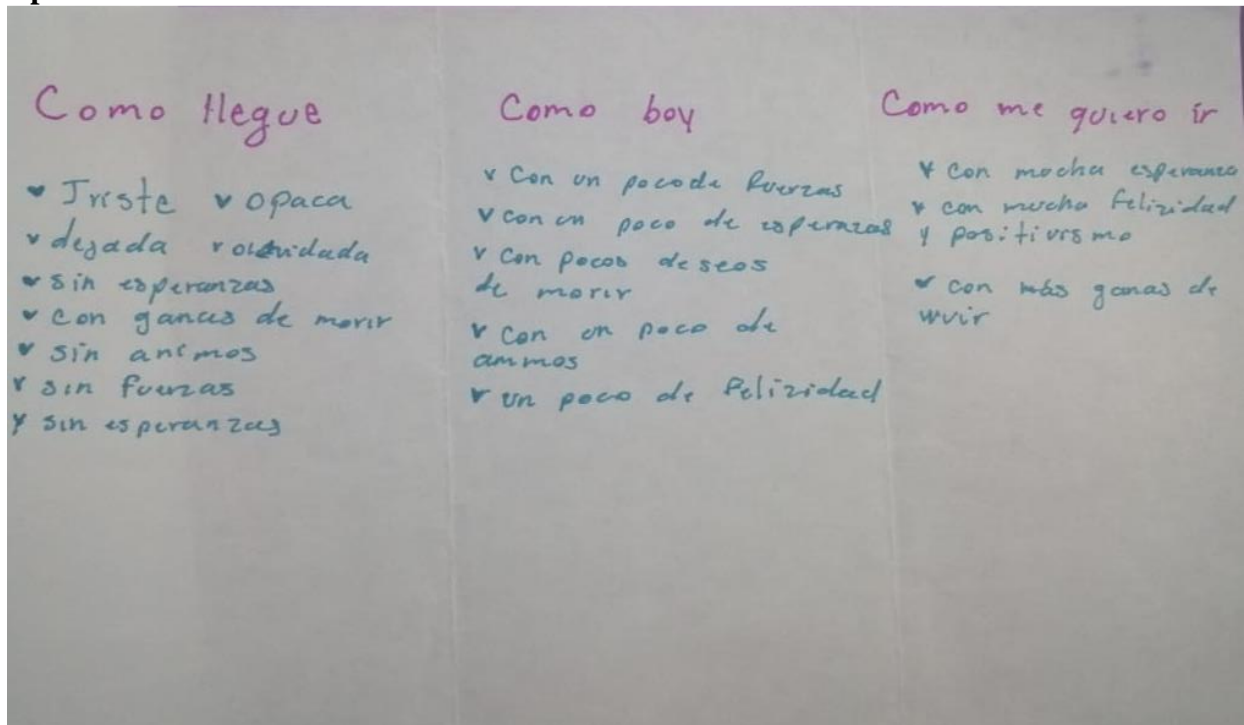 Como llegue
♥ Triste ♥ opaca
♥ dejada ♥ olvidada
♥ sin esperanzas
♥ con ganas de morir
♥ sin animos
♥ sin fuerzas
♥ sin esperanzas
Como boy
♥ Con un poco de fuerzas
♥ con un poco de esperazas
♥ Con pocos deseos
de morir
♥ Con un poco de
animos
♥ un poco de felizidad
Como me quiero ir
♥ Con mucha esperanza
♥ con mucha felizidad
y positivismo
♥ con más ganas de
vivir